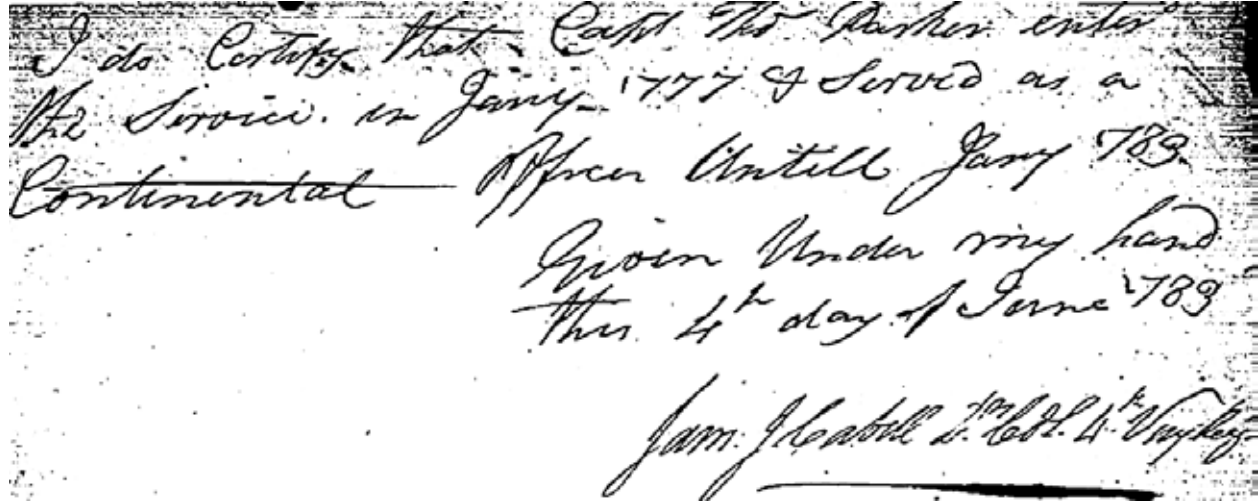 I do Certify that Capt Thos Parker enterd
the Service. in Jany 1777 & Served as a
Continental Officer Untill Jany 1783
Given Under my hand
this 4th day of June 1783
Sam. J Cabell Lt. Col. 4th Virg Reg